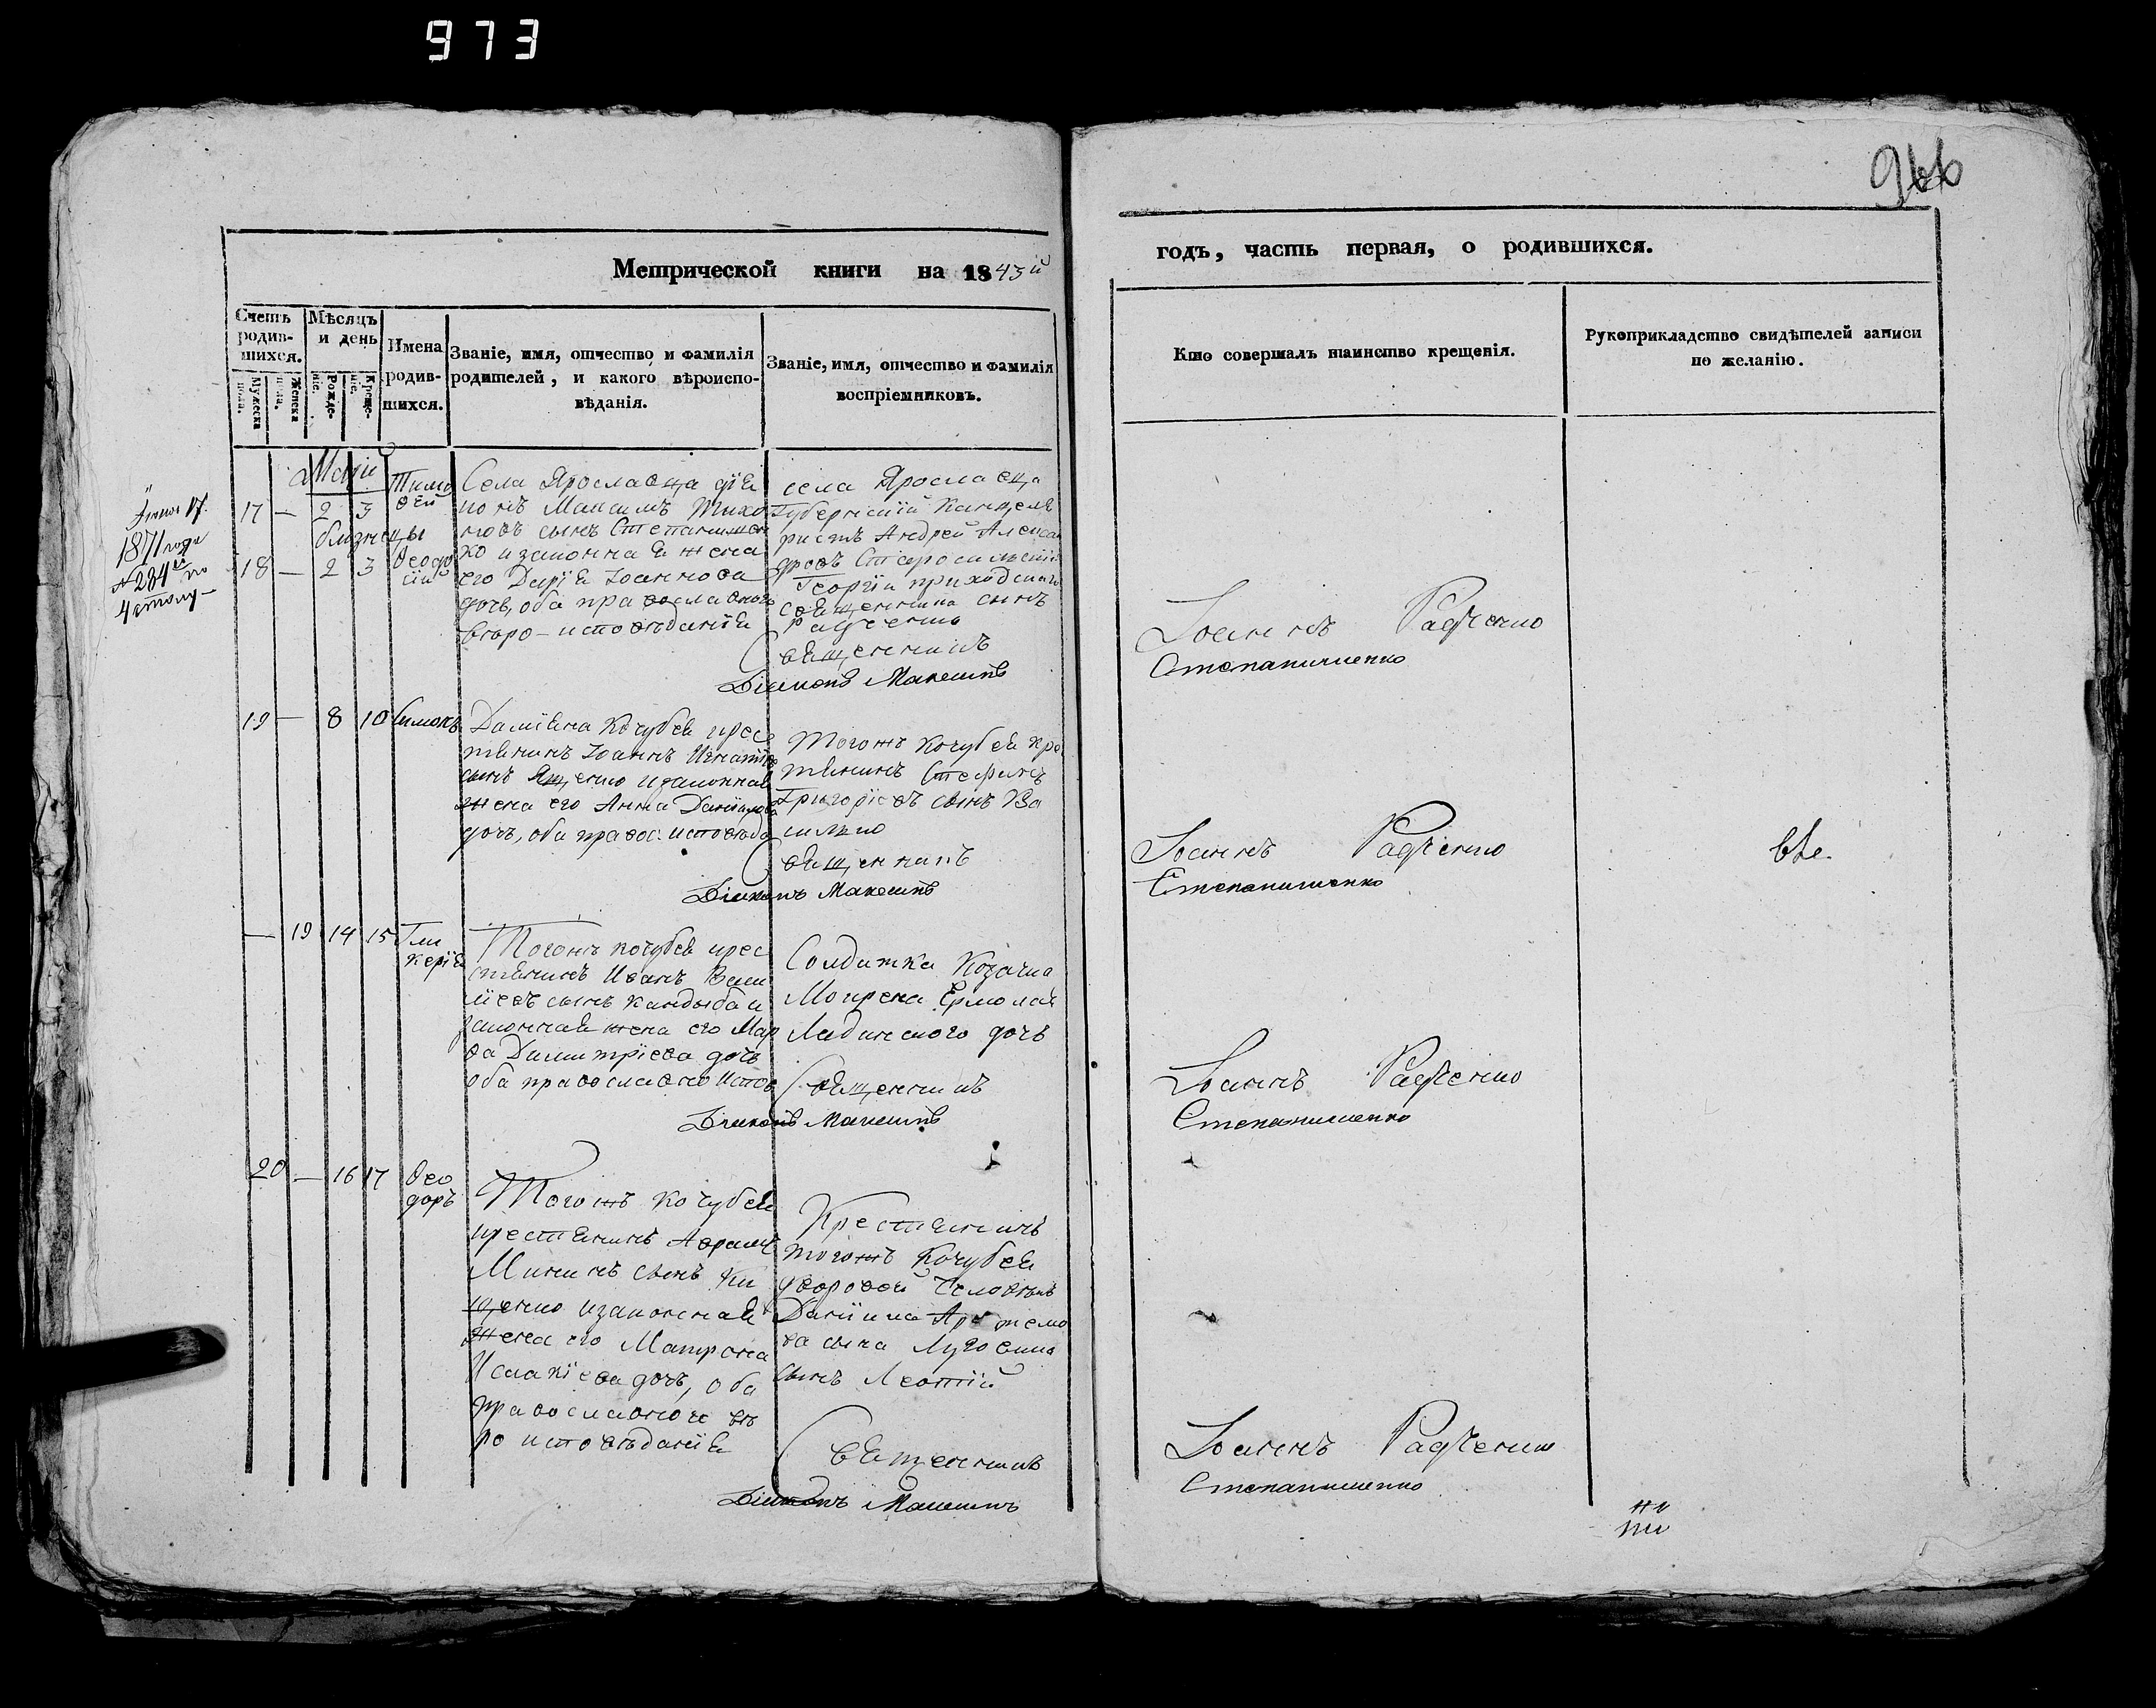 973
966
Метрической книги на 1843й
годъ, часть первая, о родившихся.
Счетъ родив-шихся.
Мужеска пола.
Женска пола.
Мѣсяцъ и день
Рожде-ніе.
Креще-ніе.
Имена родив-шихся.
Званіе, имя, отчество и фамилія родителей, и какого вѣроиспо-вѣданія.
Званіе, имя, отчество и фамилія воспріемниковъ.
Кто совершалъ таинство крещенія.
Рукоприкладство свидѣтелей записи по желанію.
1871 года
№ 284
Маіи
17 — 2 3 Тимо
ѳей
близнецы
18 — 2 3 Ѳеодо
сій
Села Ярославца дія
конъ Максимъ Тихо
новъ сынъ Степанишен
ко изаконная жена
его Дарія Іоаннова
дочь, оба православного
вѣро-исповѣданія
села Ярославца
Губернскій Канцеля
ристъ Андрей Алексан
дровъ Старосельскій
Георгіи приходскаго
священника сынъ
Радченко
Священникъ
Діяконъ Максимъ
Іоаннъ Радченко
Степанишенко
19 — 8 10 Симонъ
Даміяна Кочубея крес
тянинъ Іоаннъ Игнатіев
сынъ Ященко изаконная
жена его Анна Даніилова
дочь, оба правос. исповѣда
Тогожъ Кочубея кре
тянинъ Стефанъ
Григоріевъ сынъ Ва
силько
Священникъ
Діяконъ Максимъ
Іоаннъ Радченко
Степанишенко
— 19 14 15 Гли
керія
Тогожъ кочубея крес
стянинъ Иванъ Васи
ліевъ сынъ Кандыба и
законная жена его Мар
ѳа Димитріева дочь
оба православно испов
Солдатка Козачка
Мокрена Ермолая
Лабинского дочь
Священникъ
Діяконъ Максимъ
Іоаннъ Радченко
Степанишенко
20 — 16 17 Ѳео
доръ
Тогожъ Кочубея
крестянинъ Аврамъ
Мининъ сынъ Ки
щенко изаконная
жена его Матрона
Исакіева дочь, оба
православного вѣ
ро исповѣданія
Крестянинъ
тогожъ Кочубея
дворовой человѣкъ
Даніила Артемо
ва сына Луговика
сынъ Леонтій
Священникъ
Діяконъ Максимъ
Іоаннъ Радченко
Степанишенко